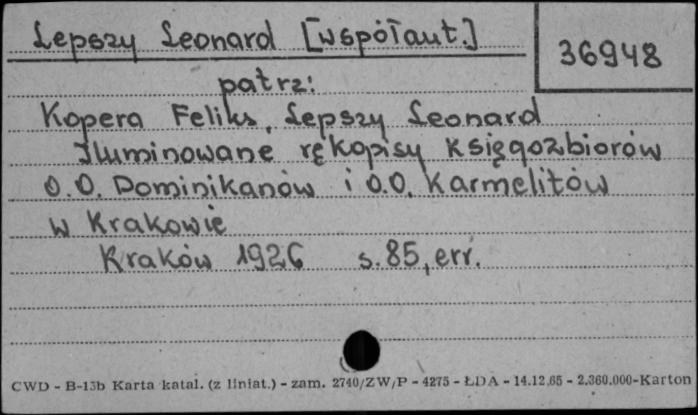 Lepszy Leonard [współaut.]
36948
patrz:
Kopera Feliks, Lepszy Leonard
Iluminowane rękopisy księgozbiorów
O.O. Dominikanów i O.O. Karmelitów
w Krakowie
Kraków 1926 s. 85, err.
CWD - B-13b Karta katal. (z liniat.) - zam. 2740/ZW/P - 4275 - ŁDA - 14.12.65 - 2.360.000-Karton